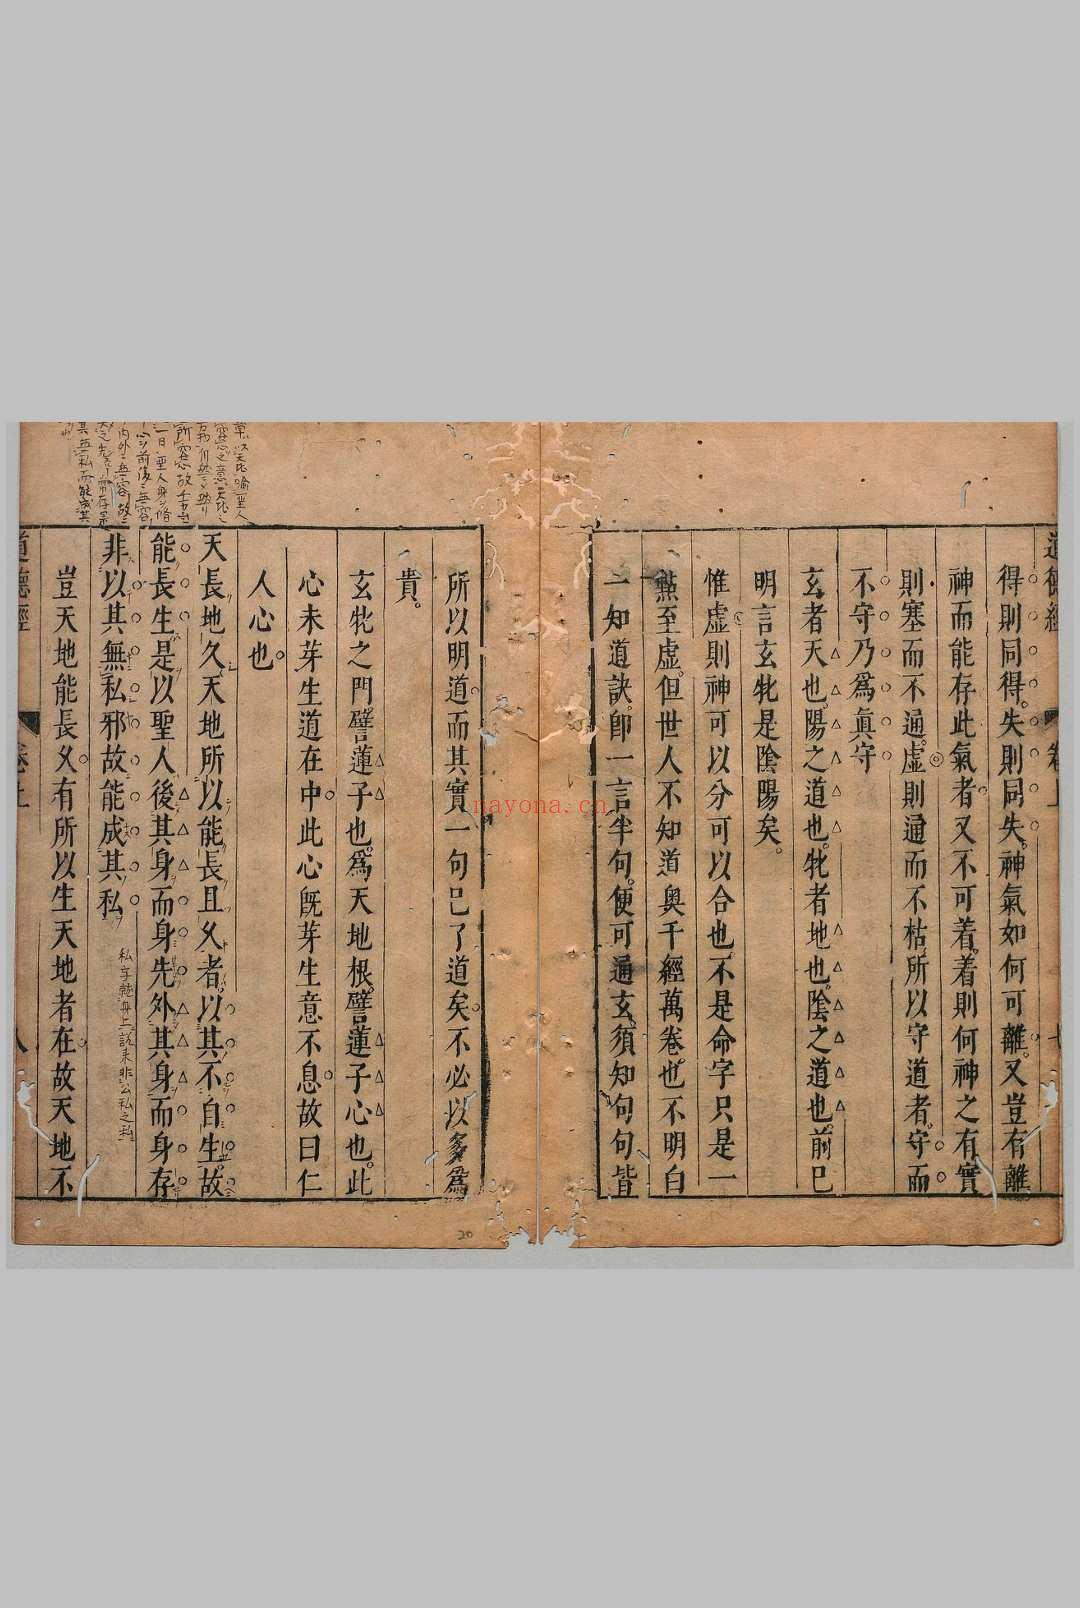 道德經
卷上
七
得則同得。失則同失。神氣如何可離。又豈有離
神而能存此氣者。又不可着。着則何神之有。實
則塞而不通。虛則通而不枯。所以守道者。守而
不守。乃爲眞守
玄者天也。陽之道也。牝者地也。陰之道也。前巳
明言玄牝是陰陽矣。
惟虛則神可以分可以合也。不是命字只是一
㸃至虛。但世人不知道奧千經萬卷也不明白
一知道訣。卽一言半句。便可通玄。須知句句皆
所以明道。而其實一句巳了道矣。不必以多爲
貴。
玄牝之門。譬蓮子也。爲天地根。譬蓮子心也。此
心未芽。生道在中。此心旣芽。生意不息。故曰仁
人心也。
天長地久。天地所以能長且久者。以其不自生。故
能長生。是以聖人後其身而身先。外其身而身存。
非以其無私邪。故能成其私
豈天地能長久。有所以生天地者在。故天地不
道德經
卷上
八
20
nayona.cn